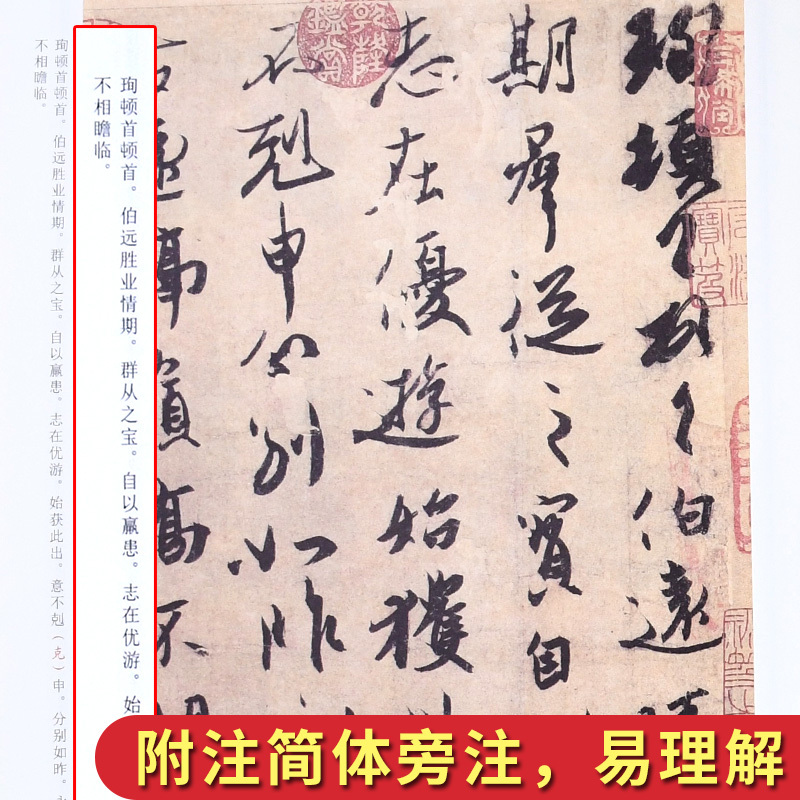 珣頓首頓首伯遠
期羣從之寶自
志在優遊始獲
不剋申分別如昨
古遠隔嶺嶠不
珣顿首顿首。伯远胜业情期。群从之宝。自以羸患。志在优游。始
不相瞻临。
珣顿首顿首。伯远胜业情期。群从之宝。自以羸患。志在优游。始获此出。意不剋（克）申。分别如昨。
不相瞻临。
附注简体旁注，易理解